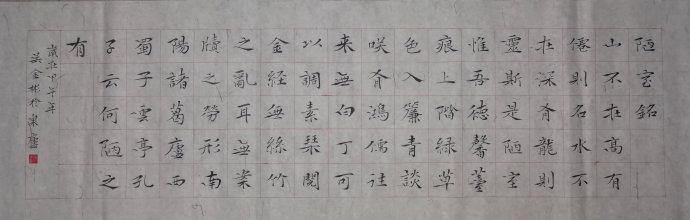 陋室銘
山不在高有
僊則名水不
在深有龍則
靈斯是陋室
惟吾德馨薹
痕上階緑草
色入簾青談
咲有鴻儒往
来無白丁可
以調素琴閱
金経無絲竹
之亂耳無案
牘之勞形南
陽諸葛廬西
蜀子雲亭孔
子云何陋之
有
歲在甲午年
吴金彬於